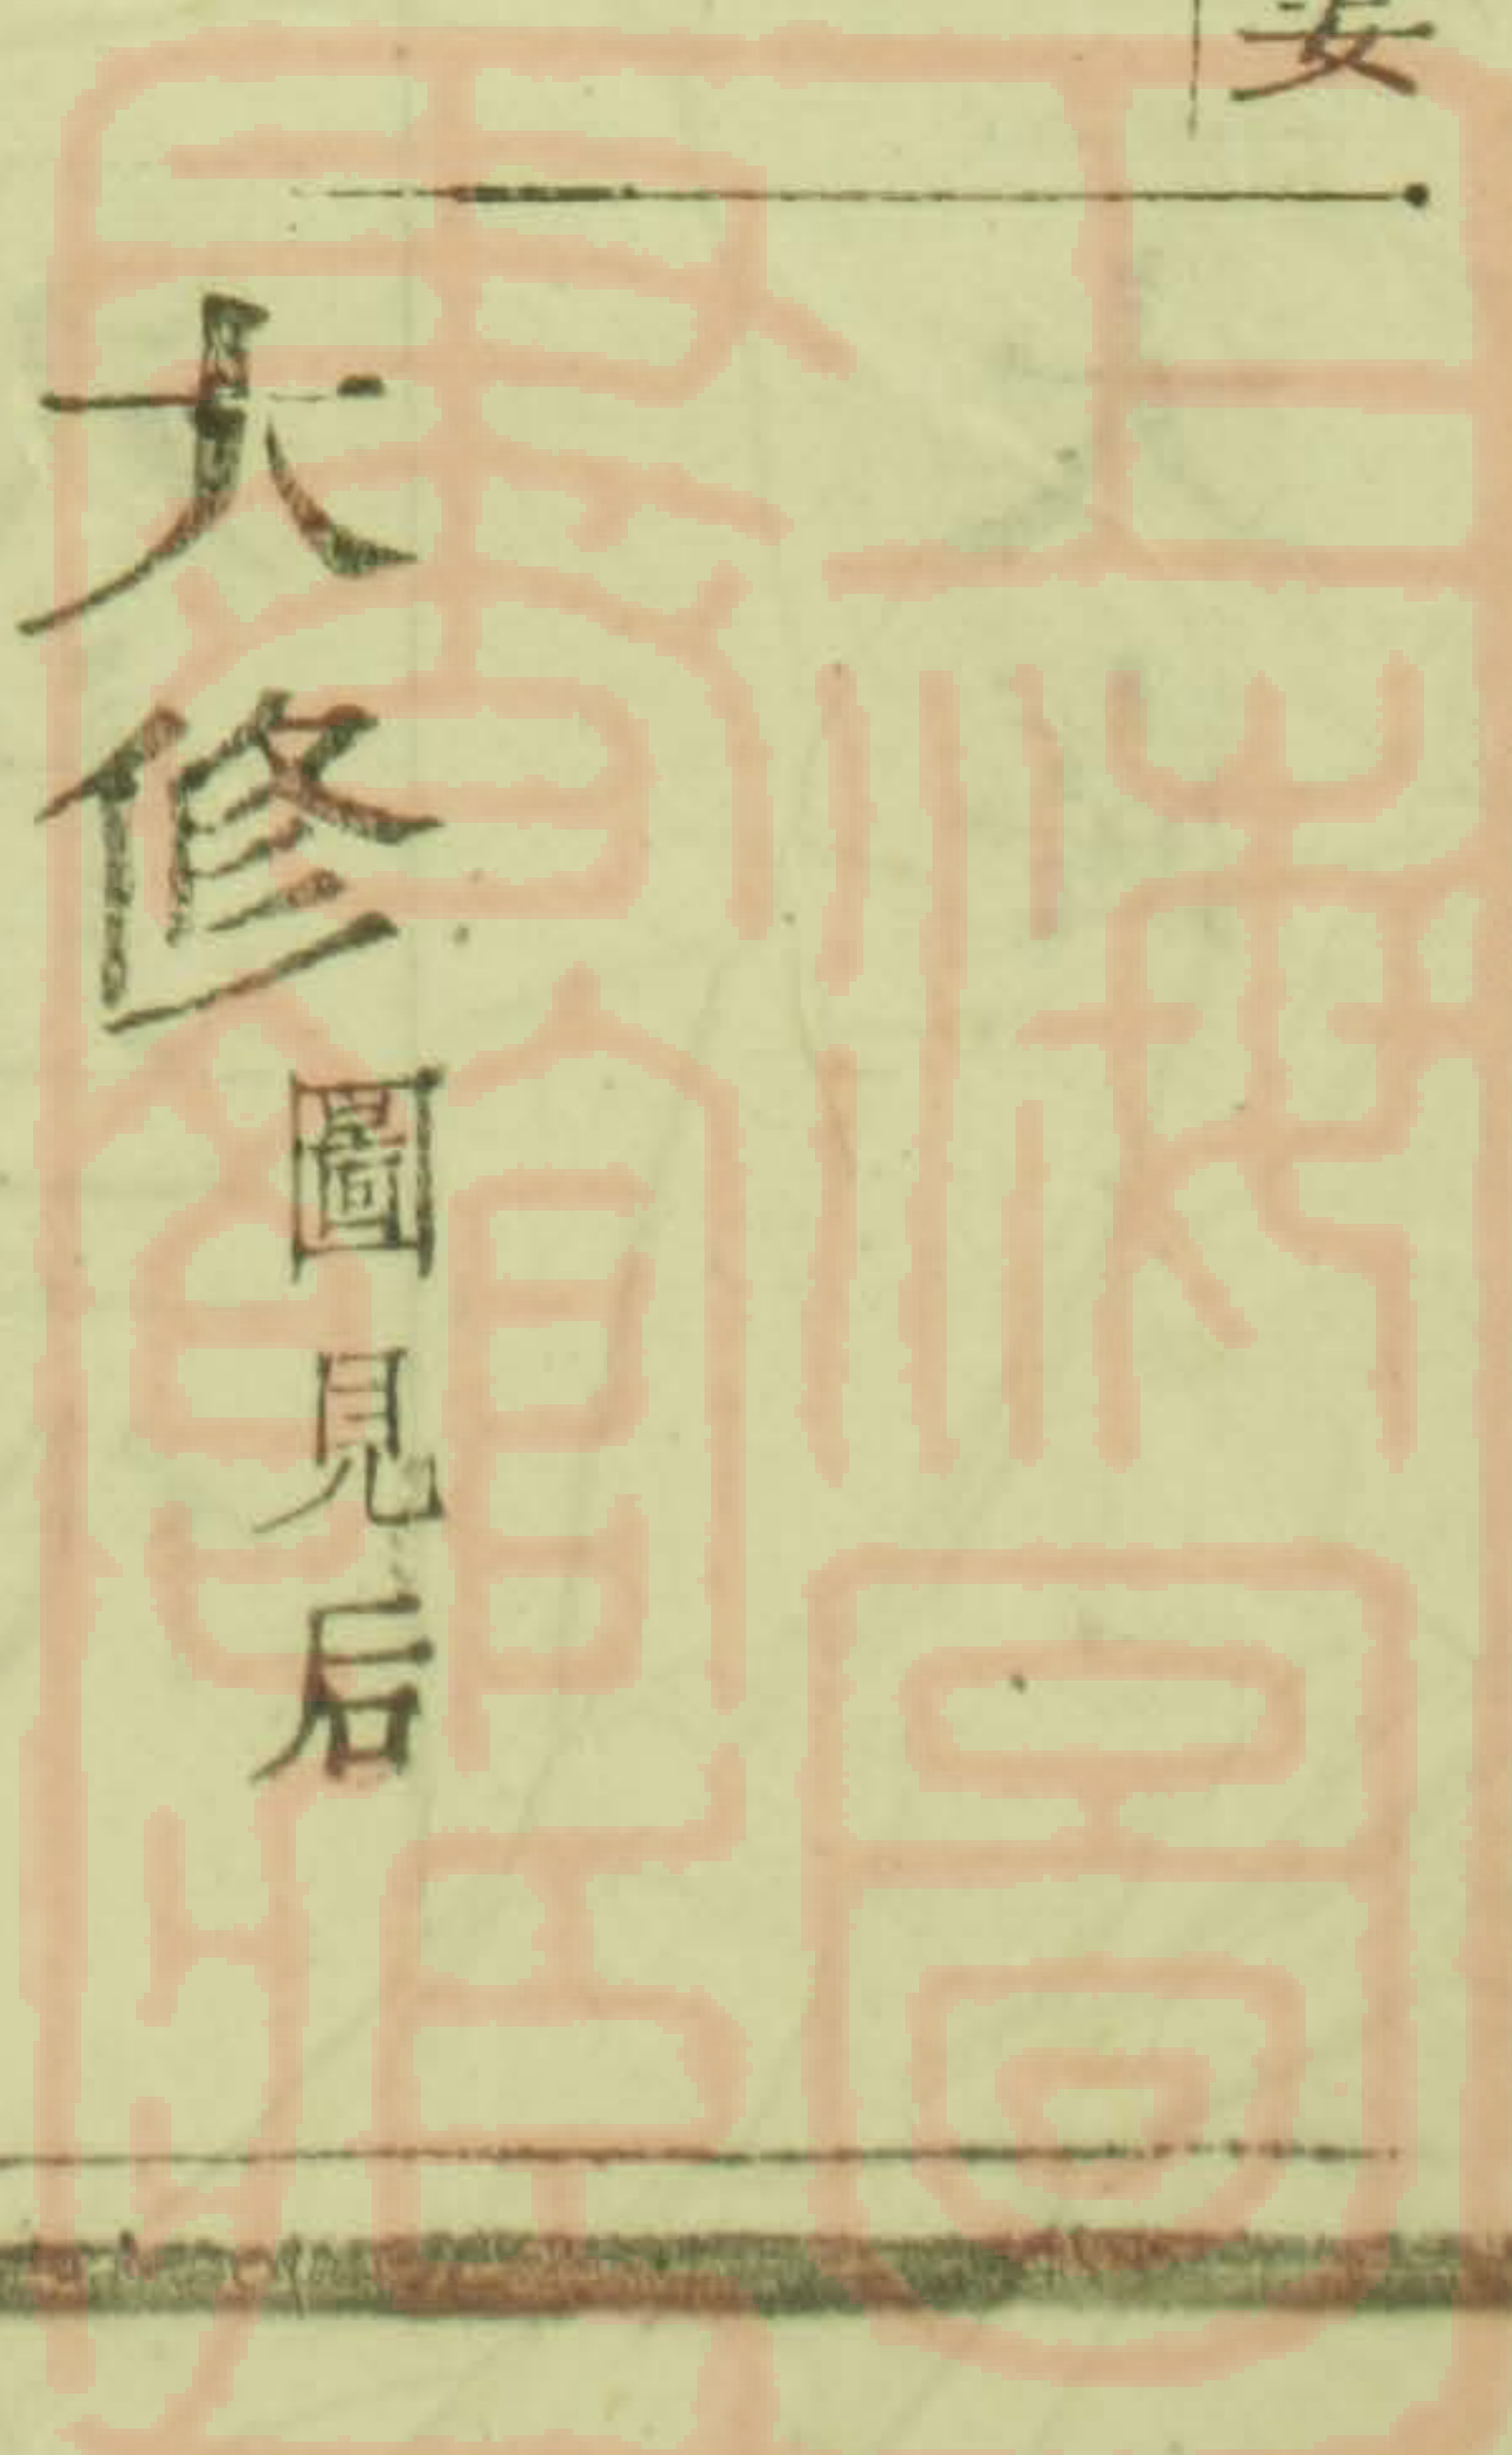 大修圖見后
上海圖
書館藏